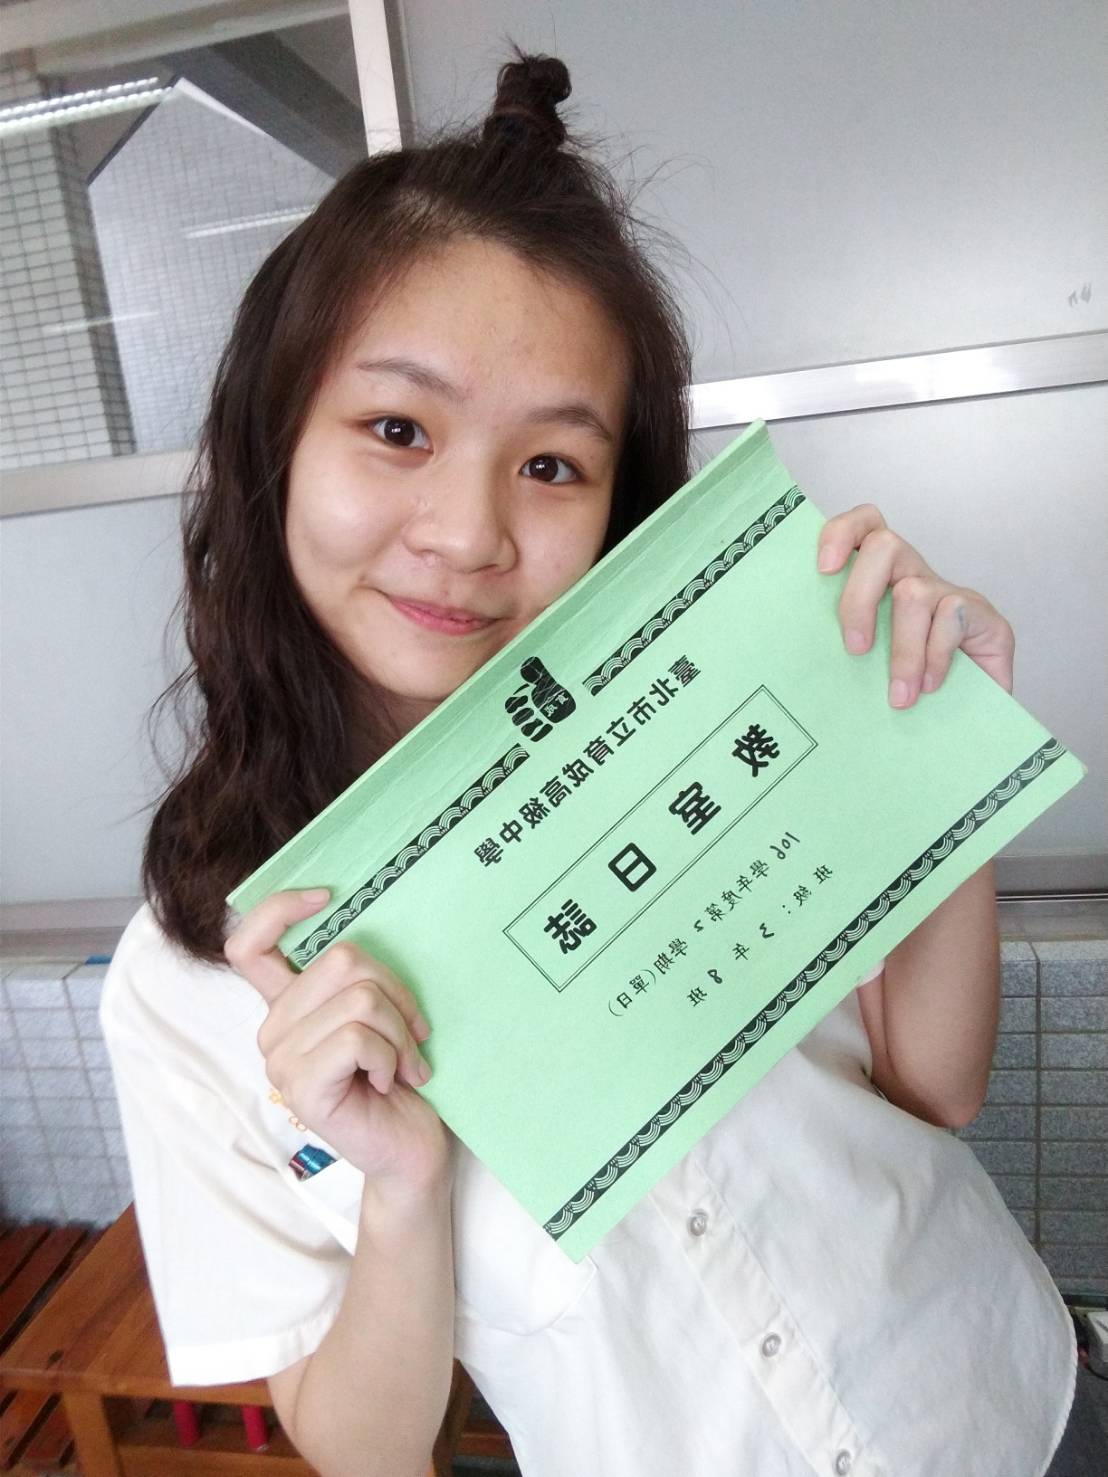 育成
臺北市立育成高級中學
教室日誌
106學年度第2學期(單日)
班級:3年8班